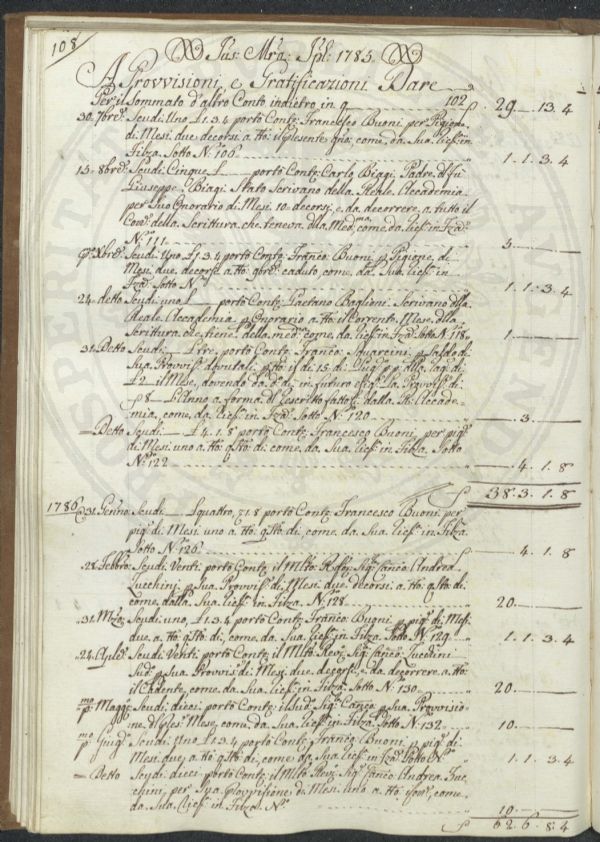 108
Jus: Mrã: Jph: 1785.
A Provvisioni, e Gratificazioni Dare
Per il Sommato d'altro Conto indietro, in q 102 29 13. 4
30. 7bre. Scudi Uno £ 1. 3. 4 portò Contꞩ Francesco Buoni per Pigione
di Mesi due decorsi a tto: il presente gno: come da Sua Ricꞩ: in
Filza Sotto N: 106 1. 1. 3. 4
15. 8bre. Scudi Cinque £ portò Contꞩ Carlo Biagi Padre del fu
Giuseppe Biagi Stato Scrivano della Reale Accademia
per Suo Onorario di Mesi 10 decorsi, e da decorrere a tutto il
della Scrittura che teneva della Medma come da Ricꞩ in Fza
N: 111 5
Pmo Xbre. Scudi Uno £ 1. 3. 4 portò Contꞩ Franco: Buoni p Pigione di
Mesi due decorsi a tto: 9bre: caduto, come da Sua Ricꞩ in
Fza Sotto N 1. 1. 3. 4
24. detto Scudi uno £ portò Contꞩ Gaetano Baglioni Scrivano della
Reale Accademia p Onorario a tto: il Corrente Mese della
Scrittura che tiene della medma come da Ricꞩ in Fza Sotto N: 118 1
31. Detto Scudi £ tre portò Contꞩ Franco: Squarcini p Saldo di
Sua Provvisꞩ a tto: il dì 15 di Giugo
£ 2 il Mese, dovendo da d: dì in futuro Provvisꞩ di
8 l'Anno a forma del Rescritto fatto dalla R. Accade-
mia, come da Ricꞩ in Fza Sotto N: 120 3
Detto Scudi £ 4. 1. 8 portò Contꞩ Francesco Buoni per pigꞩ
di Mesi uno a tto: qsto: dì come da Sua Ricꞩ in Filza Sotto
N: 122 4. 1. 8
38. 3. 1. 8
1786 31. Genno: Scudi £ quattro, 1. 8 portò Contꞩ Francesco Buoni per
pigꞩ di Mesi uno a tto: qsto: dì come da Sua Ricꞩ in Filza
Sotto N: 126 4. 1. 8
28. Febbro: Scudi Venti portò Contꞩ il Mlto: Revꞩ Sigꞩ Canco: Andrea
Zucchini p Sua Provvisꞩ di Mesi due decorsi a tto: qsto: dì
come dalla Sua Ricꞩ in Filza N: 128 20
31. Mzo: Scudi uno, £ 1. 3. 4 portò Contꞩ Franco: Buoni p pigꞩ di Mesi
due a tto: qsto: dì, come da Sua Ricꞩ in Filza Sotto N: 129 1. 1. 3. 4
24. Aple: Scudi Venti portò Contꞩ il Mlto: Revꞩ Sigꞩ Canco: Zucchini
Sudꞩ p Sua Provvisꞩ di Mesi due decorsi, e da decorrere a tto:
il Cadente, come da Sua Ricꞩ in Filza Sotto N: 130 20
pmo Magg: Scudi dieci portò Contꞩ il Sudꞩ Sigꞩ Canco: p Sua Provvisio-
ne di Mese, come da Sua Ricꞩ in Filza Sotto N: 132 10
pmo Giugo: Scudi Uno £ 1. 3. 4 portò Contꞩ Franco: Buoni p pigꞩ di
Mesi due, a tto: qsto: dì, come da Sua Ricꞩ in Fza Sotto N 1. 1. 3. 4
Detto Scudi dieci portò Contꞩ il Mlto: Revꞩ Sigꞩ Canco: Andrea Zuc-
chini, per Sua Provvisione di Mesi uno a tto: come
da Sua Ricꞩ in Filza N: 10
62. 6. 8. 4